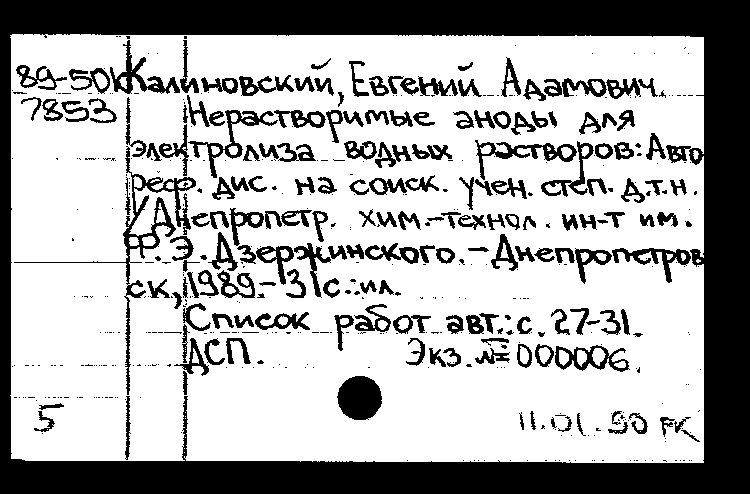 89-50к Калиновский, Евгений Адамович.
7853 Нерастворимые аноды для
электролиза водных растворов: Авто
реф. дис. на соиск. учен. степ. д.т.н.
/Днепропетр. хим.-технол. ин-т им.
Ф.Э.Дзержинского.-Днепропетров
ск, 1989.-31с.:ил.
Список работ авт.: с. 27-31.
ДСП. Экз. № 000006.
5 11.01.90 РК